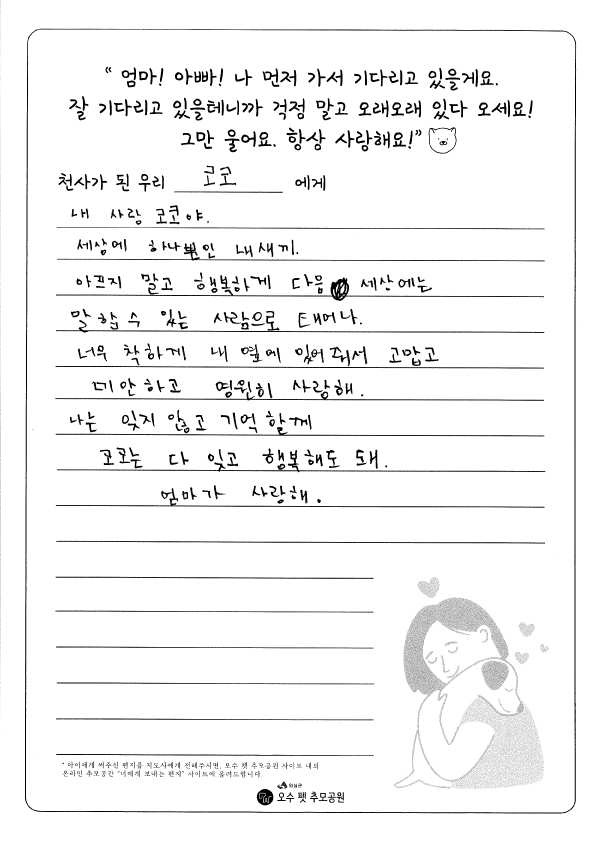 “ 엄마! 아빠! 나 먼저 가서 기다리고 있을게요.
잘 기다리고 있을테니까 걱정 말고 오래오래 있다 오세요!
그만 울어요. 항상 사랑해요!”
천사가 된 우리 코코 에게
내 사랑 코코야.
세상에 하나뿐인 내새끼.
아프지 말고 행복하게 다음 세상에는
말 할 수 있는 사람으로 태어나.
너무 착하게 내 옆에 있어줘서 고맙고
미안하고 영원히 사랑해.
나는 잊지 않고 기억할께
코코는 다 잊고 행복해도 돼.
엄마가 사랑해.
* 아이에게 써주신 편지를 지도사에게 전해주시면, 오수 펫 추모공원 사이트 내의
온라인 추모공간 "너에게 보내는 편지" 사이트에 올려드립니다.
임실군
오수 펫 추모공원